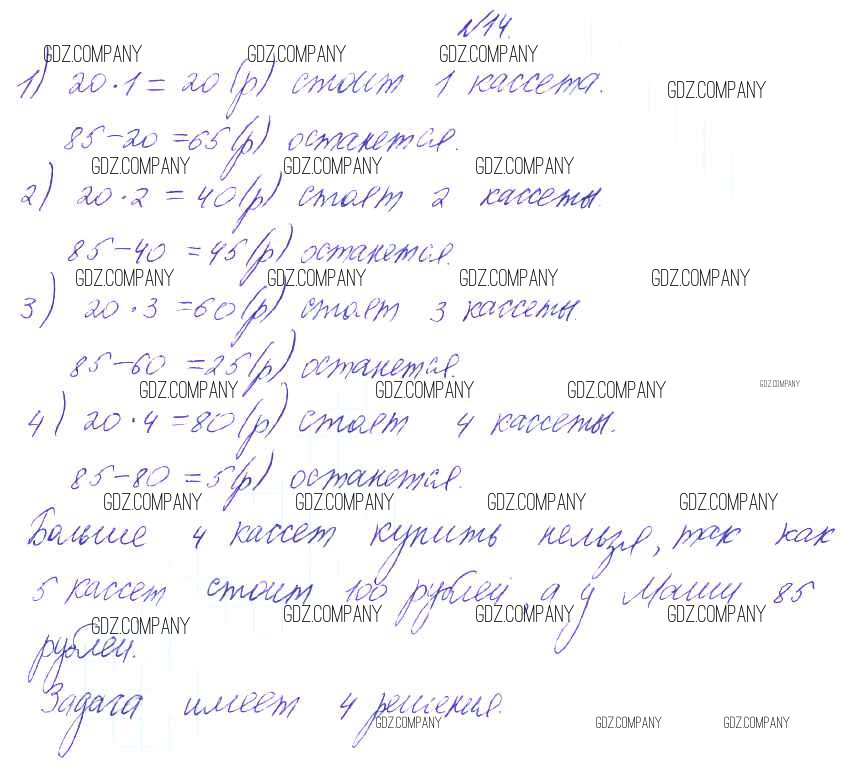 №14.
GDZ.COMPANY GDZ.COMPANY GDZ.COMPANY
1) 20·1=20(р) стоит 1 кассета.
GDZ.COMPANY
85-20=65(р) останется.
GDZ.COMPANY GDZ.COMPANY GDZ.COMPANY
2) 20·2=40(р) стоят 2 кассеты.
85-40=45(р) останется.
GDZ.COMPANY GDZ.COMPANY GDZ.COMPANY GDZ.COMPANY
3) 20·3=60(р) стоят 3 кассеты.
85-60=25(р) останется.
GDZ.COMPANY GDZ.COMPANY GDZ.COMPANY GDZ.COMPANY
4) 20·4=80(р) стоят 4 кассеты.
85-80=5(р) останется.
GDZ.COMPANY GDZ.COMPANY GDZ.COMPANY GDZ.COMPANY
Больше 4 кассет купить нельзя, так как
5 кассет стоит 100 рублей, а у Маши 85
GDZ.COMPANY GDZ.COMPANY GDZ.COMPANY GDZ.COMPANY
рублей.
Задача имеет 4 решения.
GDZ.COMPANY GDZ.COMPANY GDZ.COMPANY